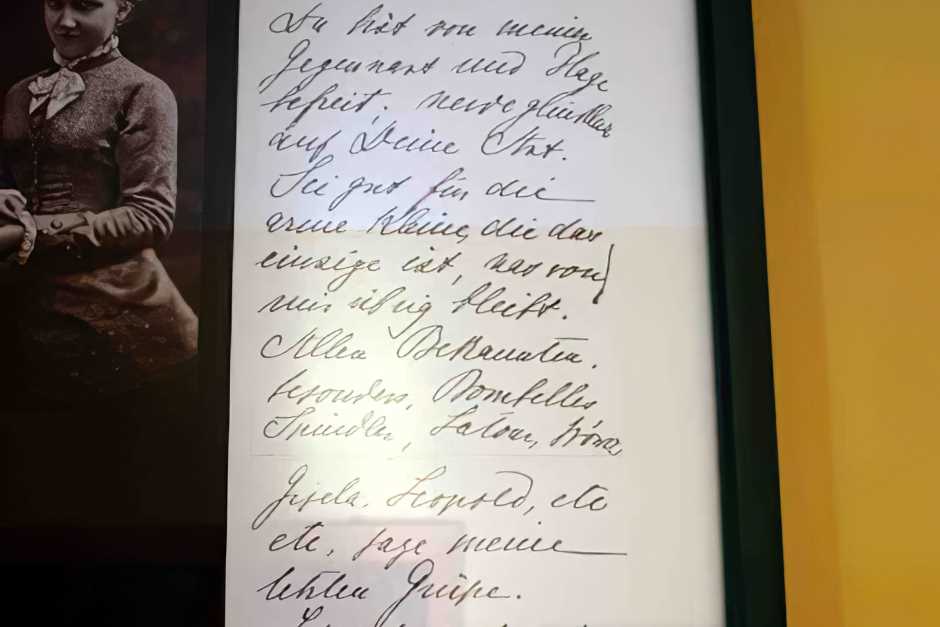 Du bist von meiner
Gegenwart und Plage
befreit; werde glücklich
auf Deine Art.
Sei gut für die
arme Kleine, die das
einzige ist, was von
mir übrig bleibt.
Allen Bekannten,
besonders, Bombelles,
Spindler, Latour, Wowo,
Gisela, Leopold, etc
etc, sage meine
letzten Grüße.